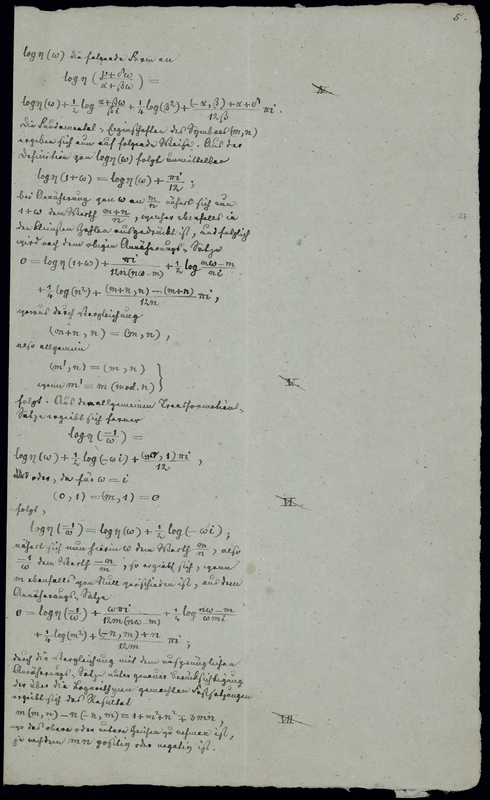 5.
log η (ω) die folgende Form an
log η ((γ+δω)/(α+βω)) =
log η(ω) + 1/2 log (α+βω)/(βi) + 1/4 log(β²) + ((-α, β) + α + δ)/(12β) πi.
Die Fundamental-Eigenschaften des Symbols (m, n)
ergeben sich nun auf folgende Weise. Aus der
Definition von log η(ω) folgt unmittelbar
log η (1+ω) = log η(ω) + πi/12 ;
bei Annäherung von ω an m/n nähert sich nun
1+ω dem Werth (m+n)/n, welcher ebenfalls in
den kleinsten Zahlen ausgedrückt ist, und folglich
wird nach dem obigen Annäherungs-Satze
0 = log η (1+ω) + πi/(12n(nω-m)) + 1/2 log (nω-m)/(ni)
+ 1/4 log (n²) + ((m+n, n) - (m+n))/(12n) πi,
woraus durch Vergleichung
(m+n, n) = (m, n) ,
also allgemein
(m', n) = (m, n)
wenn m' ≡ m (mod. n) }
V.
folgt. Aus dem allgemeinen Transformations-
Satze ergiebt sich ferner
log η (-1/ω) =
log η (ω) + 1/2 log (-ωi) + (0, 1) πi/12 ,
oder, da für ω = i
(0, 1) = (m, 1) = 0
VI.
folgt,
log η (-1/ω) = log η(ω) + 1/2 log (-ωi) ;
nähert sich nun hierin ω dem Werth m/n, also
-1/ω dem Werth -n/m, so ergiebt sich, wenn
m ebenfalls von Null verschieden ist, aus dem
Annäherungs-Satze
0 = log η (-1/ω) + ωπi/(12m(nω-m)) + 1/4 log (nω-m)/(ωmi)
+ 1/4 log (m²) + ((-n, m) + n)/(12m) πi ;
durch die Vergleichung mit dem ursprünglichen
Annäherungs-Satze unter genauer Berücksichtigung
der über die Logarithmen gemachten Festsetzungen
ergiebt sich das Resultat
m (m, n) - n (-n, m) = 1 + m² + n² ∓ 3mn ,
VII
wo das obere oder untere Zeichen zu nehmen ist,
je nachdem mn positiv oder negativ ist.